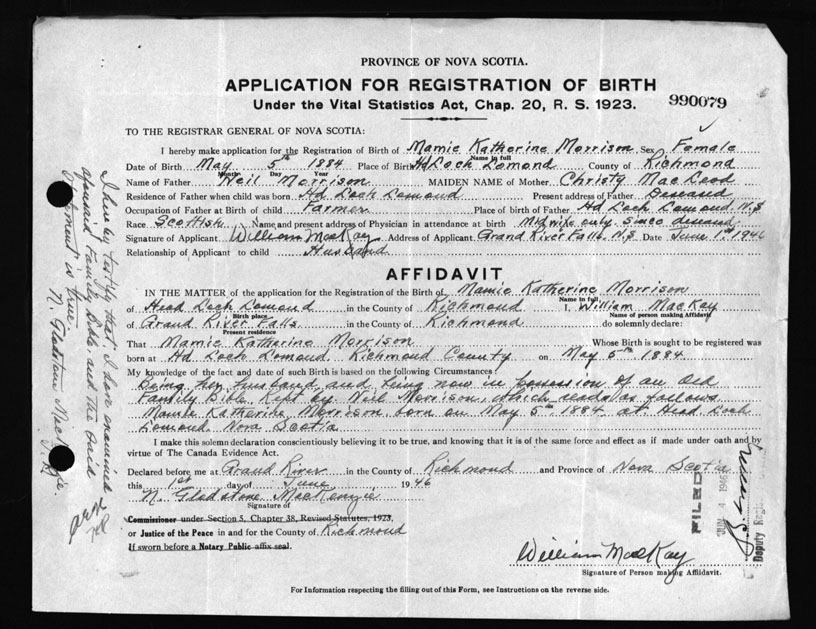 PROVINCE OF NOVA SCOTIA.
APPLICATION FOR REGISTRATION OF BIRTH
Under the Vital Statistics Act, Chap. 20, R. S. 1923.
990079
TO THE REGISTRAR GENERAL OF NOVA SCOTIA:
I hereby make application for the Registration of Birth of Mamie Katherine Morrison Sex Female
Name in full
Date of Birth May 5th 1884 Place of Birth Hd Loch Lomond County of Richmond
Month Day Year
Name of Father Neil Morrison MAIDEN NAME of Mother Christy MacLeod
Residence of Father when child was born Hd Loch Lomond Present address of Father Deceased
Occupation of Father at Birth of child Farmer Place of birth of Father Hd Loch Lomond N.S
Race Scottish Name and present address of Physician in attendance at birth Midwife only since deceased
Signature of Applicant William MacKay Address of Applicant Grand River Falls N.S Date June 1st 1946
Relationship of Applicant to child Husband
AFFIDAVIT
IN THE MATTER of the application for the Registration of the Birth of Mamie Katherine Morrison
Name in full
of Head Loch Lomond in the County of Richmond I, William MacKay
Birth place Name of person making Affidavit
of Grand River Falls in the County of Richmond do solemnly declare:
Present residence
That Mamie Katharine Morrison Whose Birth is sought to be registered was
born at Hd Loch Lomond, Richmond County on May 5th 1884
My knowledge of the fact and date of such Birth is based on the following Circumstances:
Being her husband and being now in possession of an Old
Family Bible Kept by Neil Morrison, which reads as follows
Mamie Katherine Morrison born on May 5th 1884 at Head Loch
Lomond Nova Scotia
I make this solemn declaration conscientiously believing it to be true, and knowing that it is of the same force and effect as if made under oath and by
virtue of The Canada Evidence Act.
Declared before me at Grand River in the County of Richmond and Province of Nova Scotia
this 1st day of June 1946
N. Gladstone MacKenzie
Signature of
Commissioner under Section 5, Chapter 38, Revised Statutes, 1923,
or Justice of the Peace in and for the County of Richmond
If sworn before a Notary Public affix seal.
William MacKay
Signature of Person making Affidavit.
For Information respecting the filling out of this Form, see Instructions on the reverse side.
I hereby certify that I have examined
aforesaid Family Bible and the said
statement is true.
N. Gladstone
J.P.
FILED
JUN 4 1946
Deputy